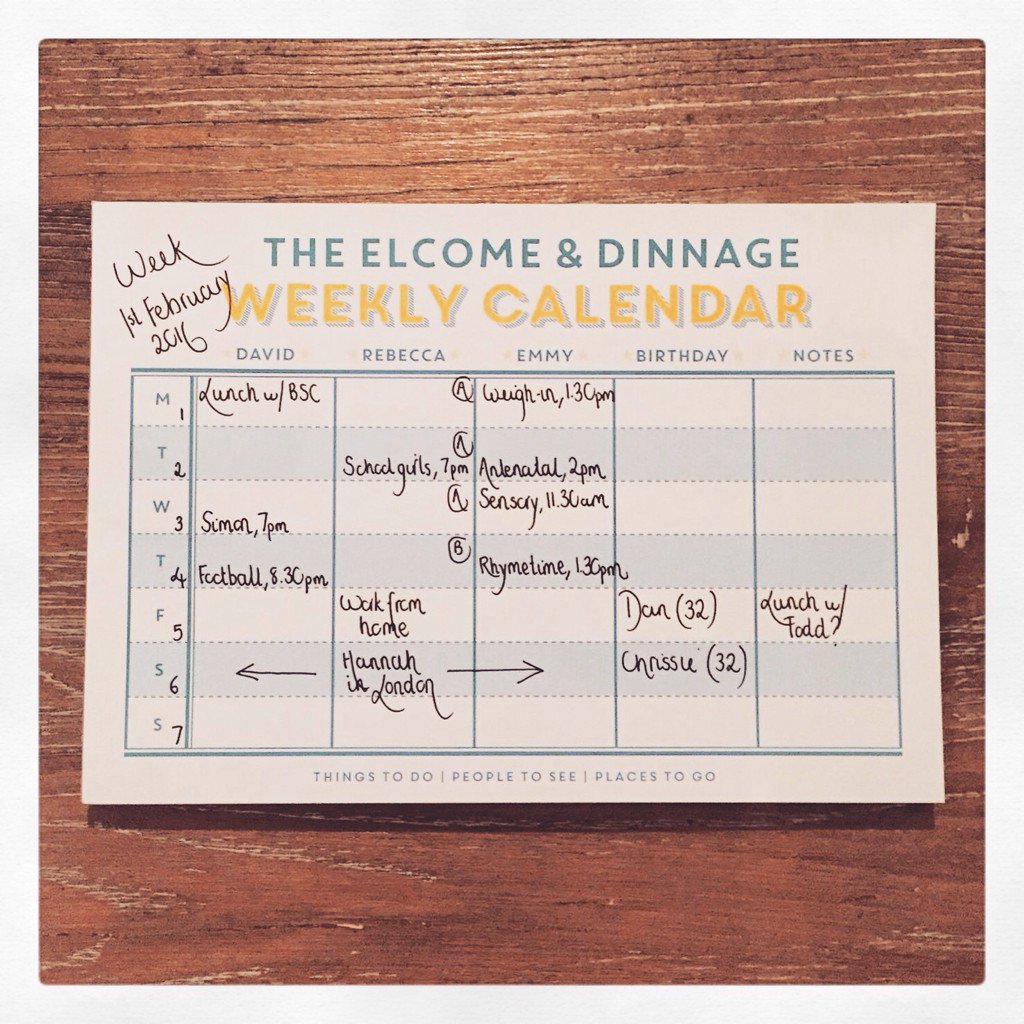 Week
1st February
2016
THE ELCOME & DINNAGE
WEEKLY CALENDAR
DAVID REBECCA EMMY BIRTHDAY NOTES
M 1 Lunch w/ BSC A Weigh-in, 1.30pm
T 2 School girls, 7pm A Antenatal, 2pm
W 3 Simon, 7pm A Sensory, 11.30am
T 4 Football, 8.30pm B Rhymetime, 1.30pm
F 5 Work from Dan (32) Lunch w/
home Todd?
S 6 ← Hannah → Chrissie (32)
in London
S 7
THINGS TO DO | PEOPLE TO SEE | PLACES TO GO